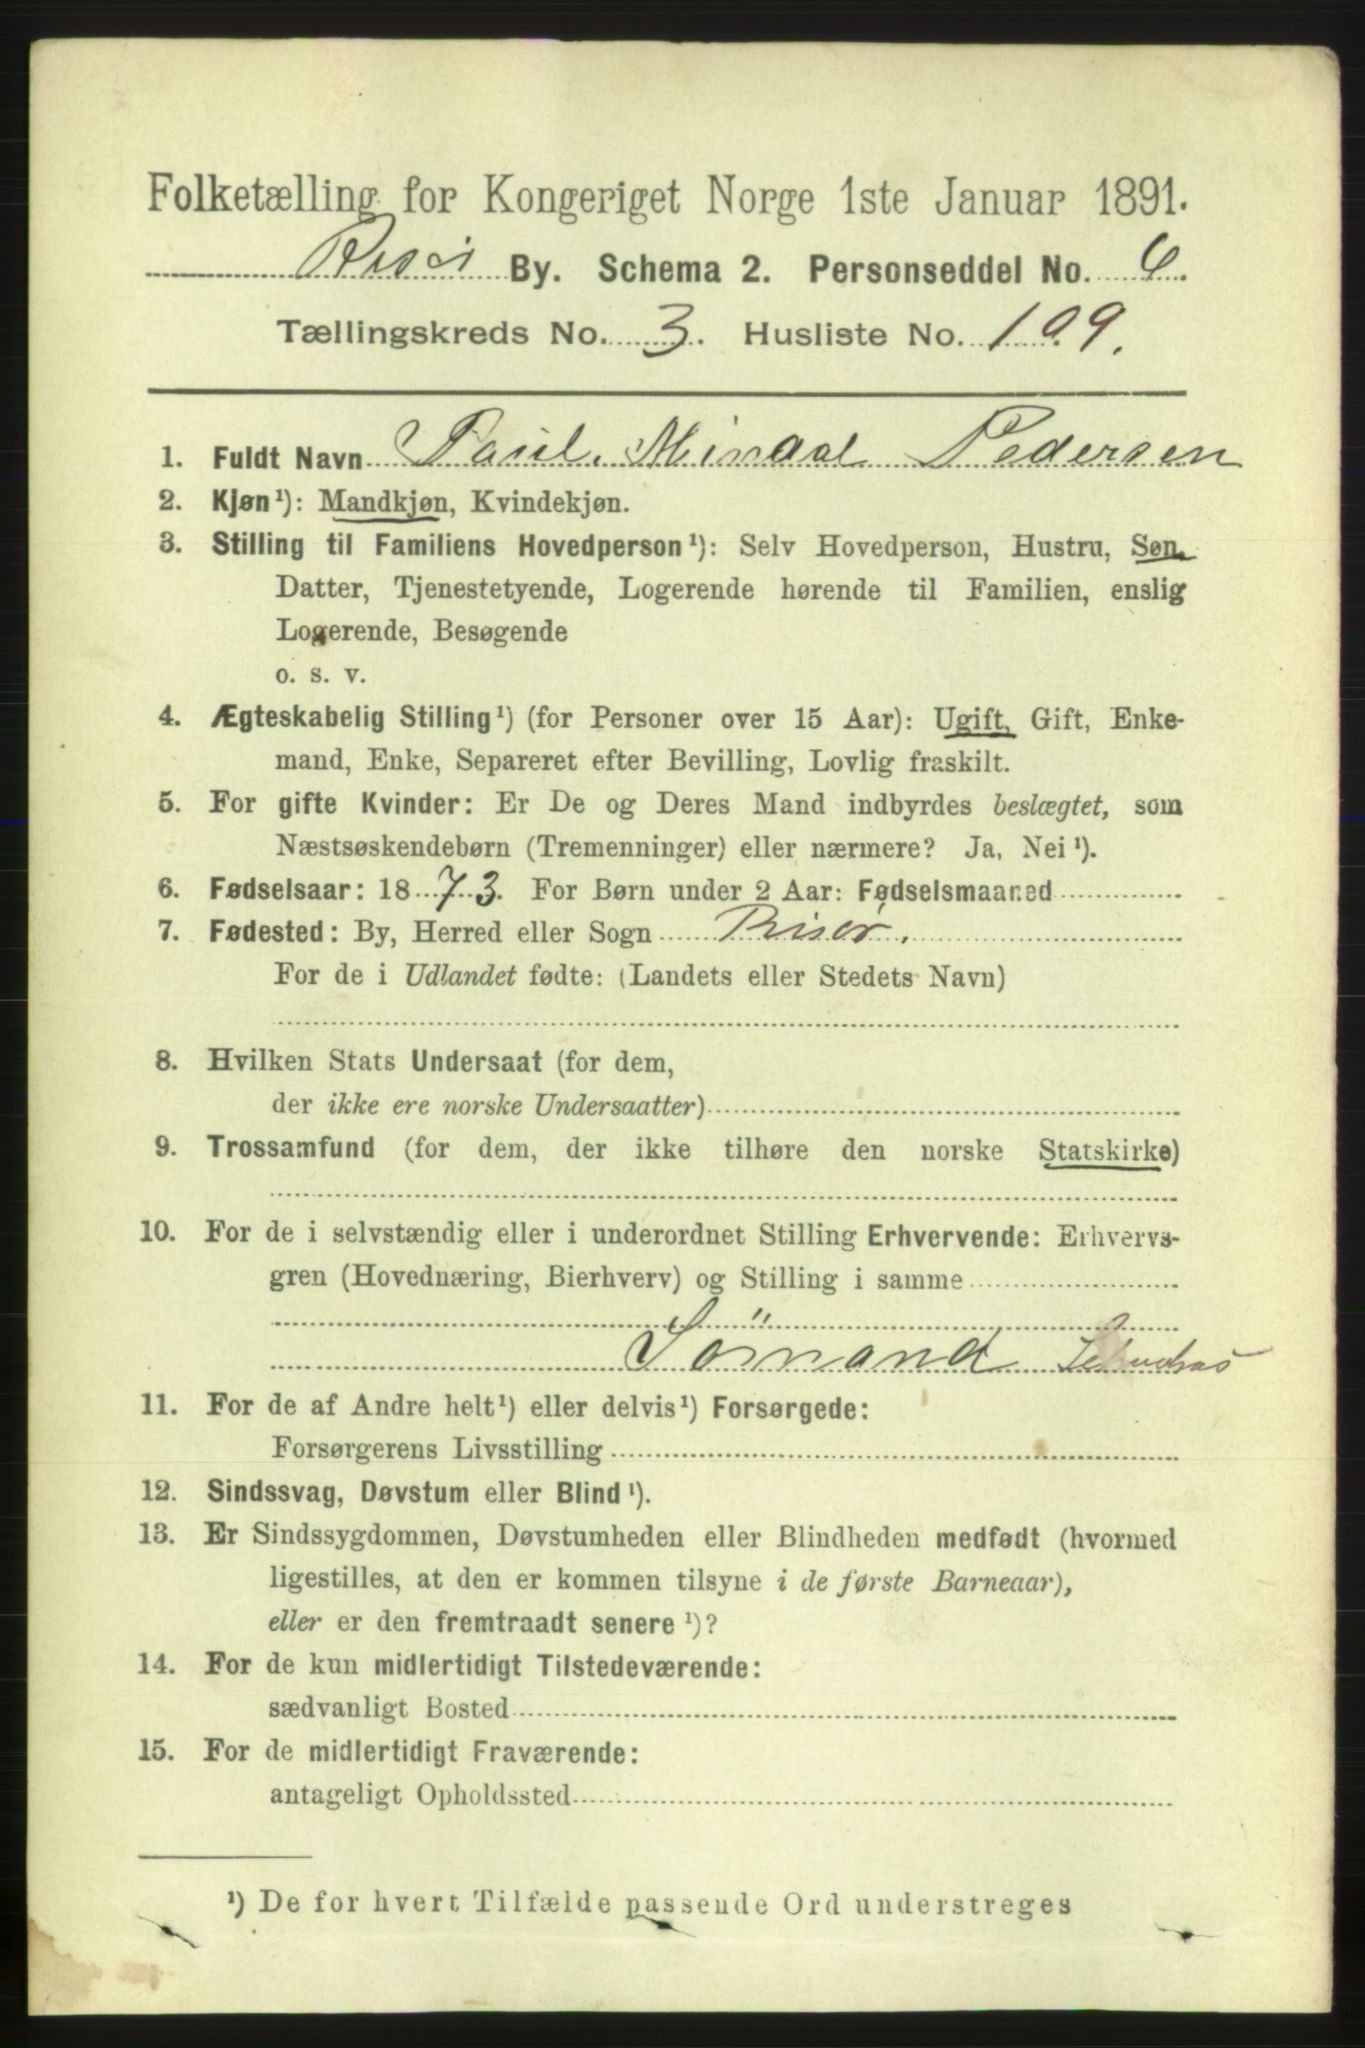 Folketælling for Kongeriget Norge 1ste Januar 1891.
Risør By. Schema 2. Personseddel No. 6.
Tællingskreds No. 3. Husliste No. 109.
1. Fuldt Navn Paul Pedersen
2. Kjøn¹): Mandkjøn, Kvindekjøn.
3. Stilling til Familiens Hovedperson¹): Selv Hovedperson, Hustru, Søn,
Datter, Tjenestetyende, Logerende hørende til Familien, enslig
Logerende, Besøgende
o. s. v.
4. Ægteskabelig Stilling¹) (for Personer over 15 Aar): Ugift, Gift, Enke-
mand, Enke, Separeret efter Bevilling, Lovlig fraskilt.
5. For gifte Kvinder: Er De og Deres Mand indbyrdes beslægtet, som
Næstsøskendebørn (Tremenninger) eller nærmere? Ja, Nei¹).
6. Fødselsaar: 1873. For Børn under 2 Aar: Fødselsmaaned
7. Fødested: By, Herred eller Sogn Risør.
For de i Udlandet fødte: (Landets eller Stedets Navn)
8. Hvilken Stats Undersaat (for dem,
der ikke ere norske Undersaatter)
9. Trossamfund (for dem, der ikke tilhøre den norske Statskirke)
10. For de i selvstændig eller i underordnet Stilling Erhvervende: Erhvervs-
gren (Hovednæring, Bierhverv) og Stilling i samme
Sömand
11. For de af Andre helt¹) eller delvis¹) Forsørgede:
Forsørgerens Livsstilling
12. Sindssvag, Døvstum eller Blind¹).
13. Er Sindssygdommen, Døvstumheden eller Blindheden medfødt (hvormed
ligestilles, at den er kommen tilsyne i de første Barneaar),
eller er den fremtraadt senere¹)?
14. For de kun midlertidigt Tilstedeværende:
sædvanligt Bosted
15. For de midlertidigt Fraværende:
antageligt Opholdssted
¹) De for hvert Tilfælde passende Ord understreges